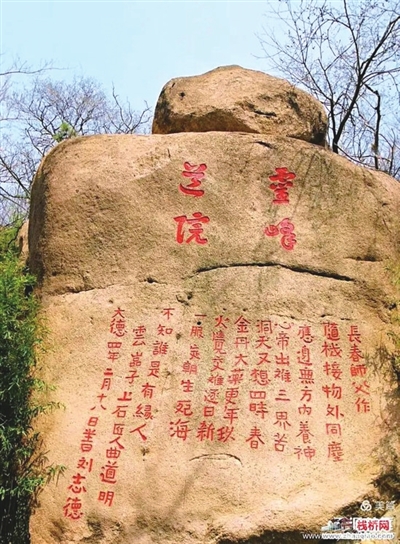 靈峰
道院
長春師父作
隨機接物外同塵
應無方内養神
心出離三界苦
洞天又想四時春
金丹大藥更年玖
火交逐日新
一生死海
不知誰是有緣人
雲岩子 上石匠人曲道明
大德四年二月十八日書刘志德
美篇
栈桥网